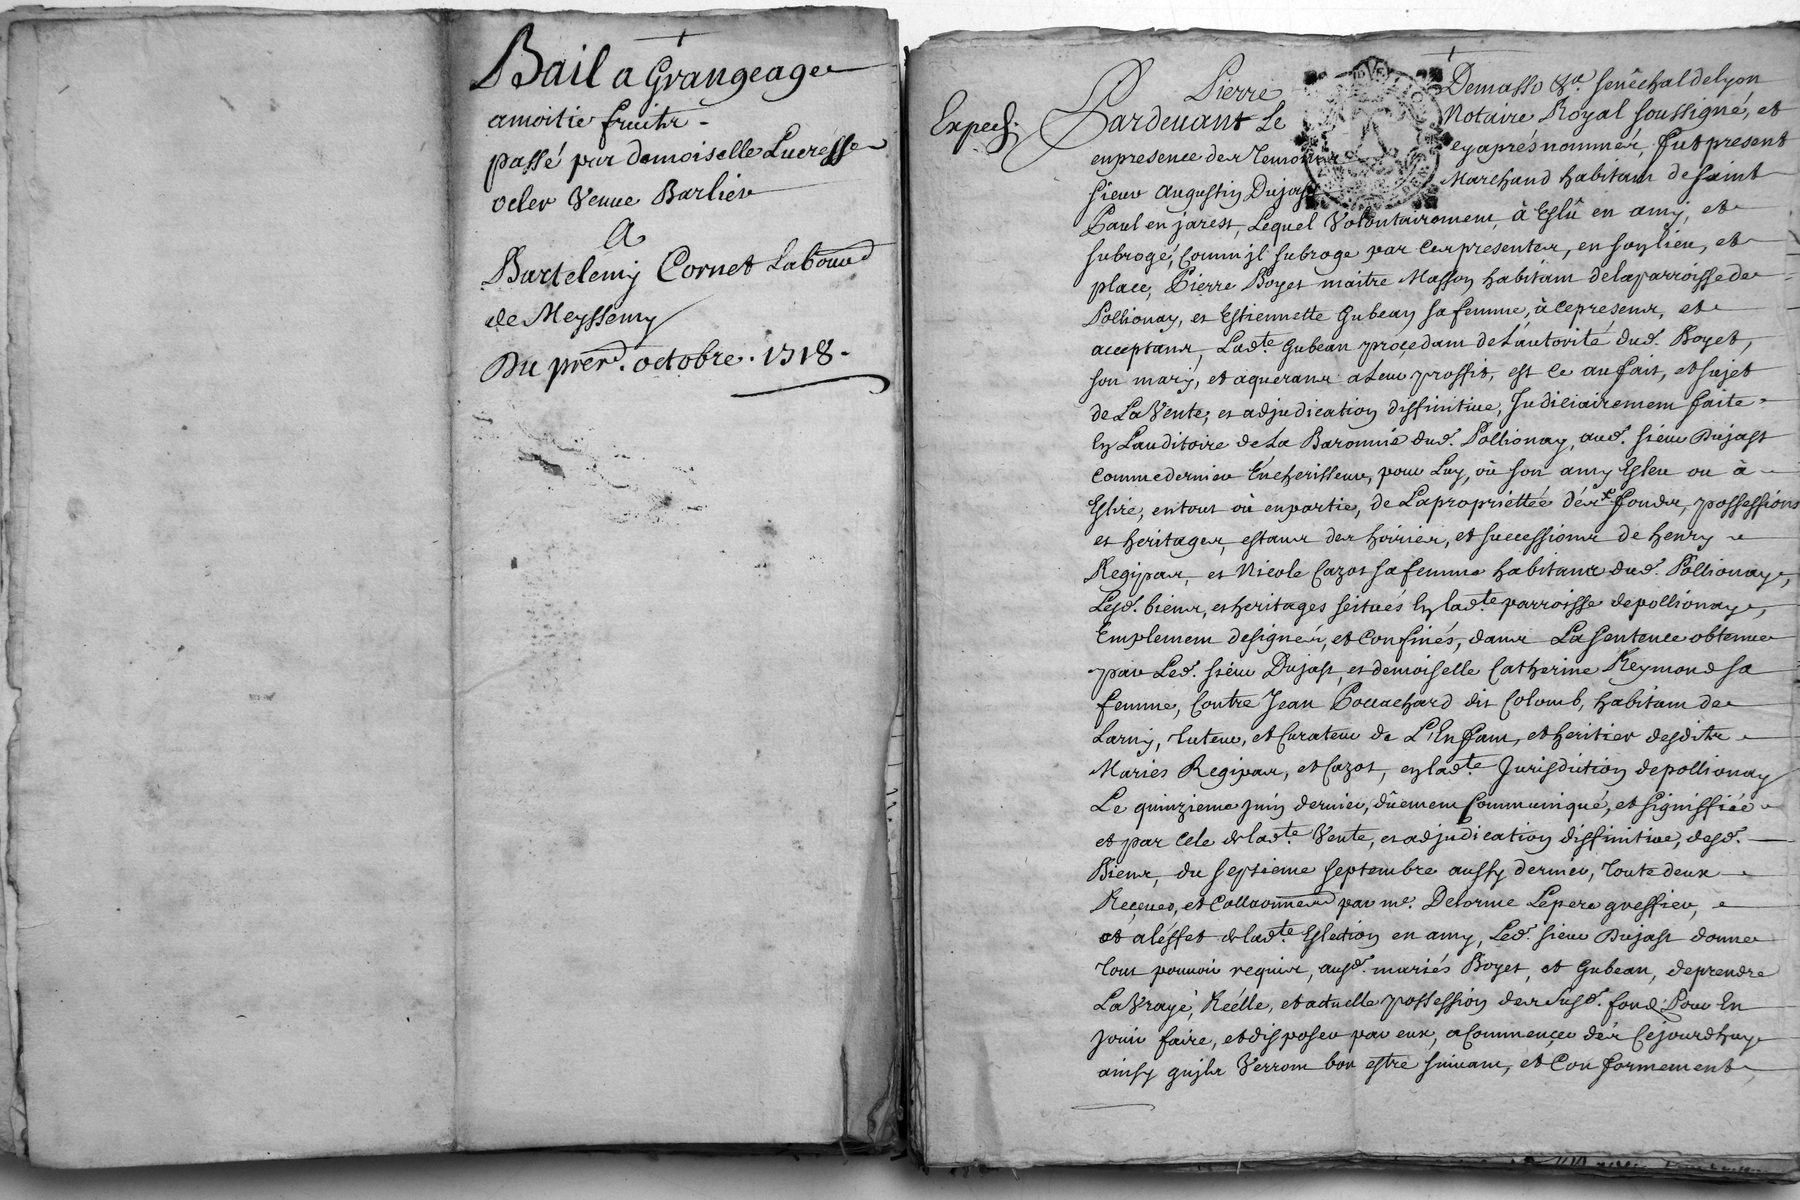 Bail a Grangeage
amoitie fruitz
passé par demoiselle Lucresse
veler Venue Barlier
A
Bartelemy Cornet Laboured
de Meyssemy
Du prer. octobre. 1718.
Exped.
Pierre Demasso
Senêchal de lyon
Pardeuant Le Notaire Royal soussigné, et
enpresence des temoins cy aprés nommés, fut present
sieur Augustin Dujast Marchand habitant de saint
Paul en jarest, Lequel Volontairement à Eslû en amy, et
subrogé, comm jl subroge par ces presentes, en son lieu, et
place, Pierre Boyet maitre Masson habitant delaparroisse de
Pollionay, et Estiennette Gubean sa femme, à ce presens, et
acceptans, Ladte. Gubean proçedant de L'autorité dud. Boyet,
son mary, et aquerans a Leur proffit, est ce au fait, et sujet
de La Vente, et adjudication diffinitiue, Judiciairement faite
En L'auditoire de La Baronnie dud. Pollionay, aud. sieur Dujast
comme dernier Encherisseur, pour Luy, où son amy Esleu ou à
Eslire, entout où enpartie, de Lapropriettée des fonds, possessions
et heritages, estans des hoiries, et successions de henry
Regipas, et Nicole Cazot sa femme habitans dud. Pollionay,
Lesd. biens, et heritages scitués En ladte. parroisse de pollionay,
Emplement designés, et Confinés, dans La sentence obtenue
par Led. sieur Dujast, et demoiselle Catherine Reymond sa
femme, Contre Jean Pouachard dit Colomb, habitant de
Larny, tuteur, et Curateur de L'Enfant, et heritier desdits
Mariés Regipas, et Cazot, en ladte. Jurisdiction de pollionay
Le quinzieme juin dernier, dûement Communiqué, et signiffiée
et par Cele de ladte. Vente, et adjudication diffinitiue, desd.
Biens, du septieme septembre aussy dernier, toute deux
Reçeues, et Collationnees par me. Delorme Lepere greffier,
et a l'éffet de ladte. Eslection en amy, Led. sieur Dujast donne
tout pouuoir requis, ausd. mariés Boyet, et Gubean, deprendre
La Vraye, Réelle, et actuelle possession des susd. fond. Pour En
jouir faire, et disposer par eux, a Commencer dés Cejourdhuy
ainsy qujls Verront bon estre suiuant, et Conformement